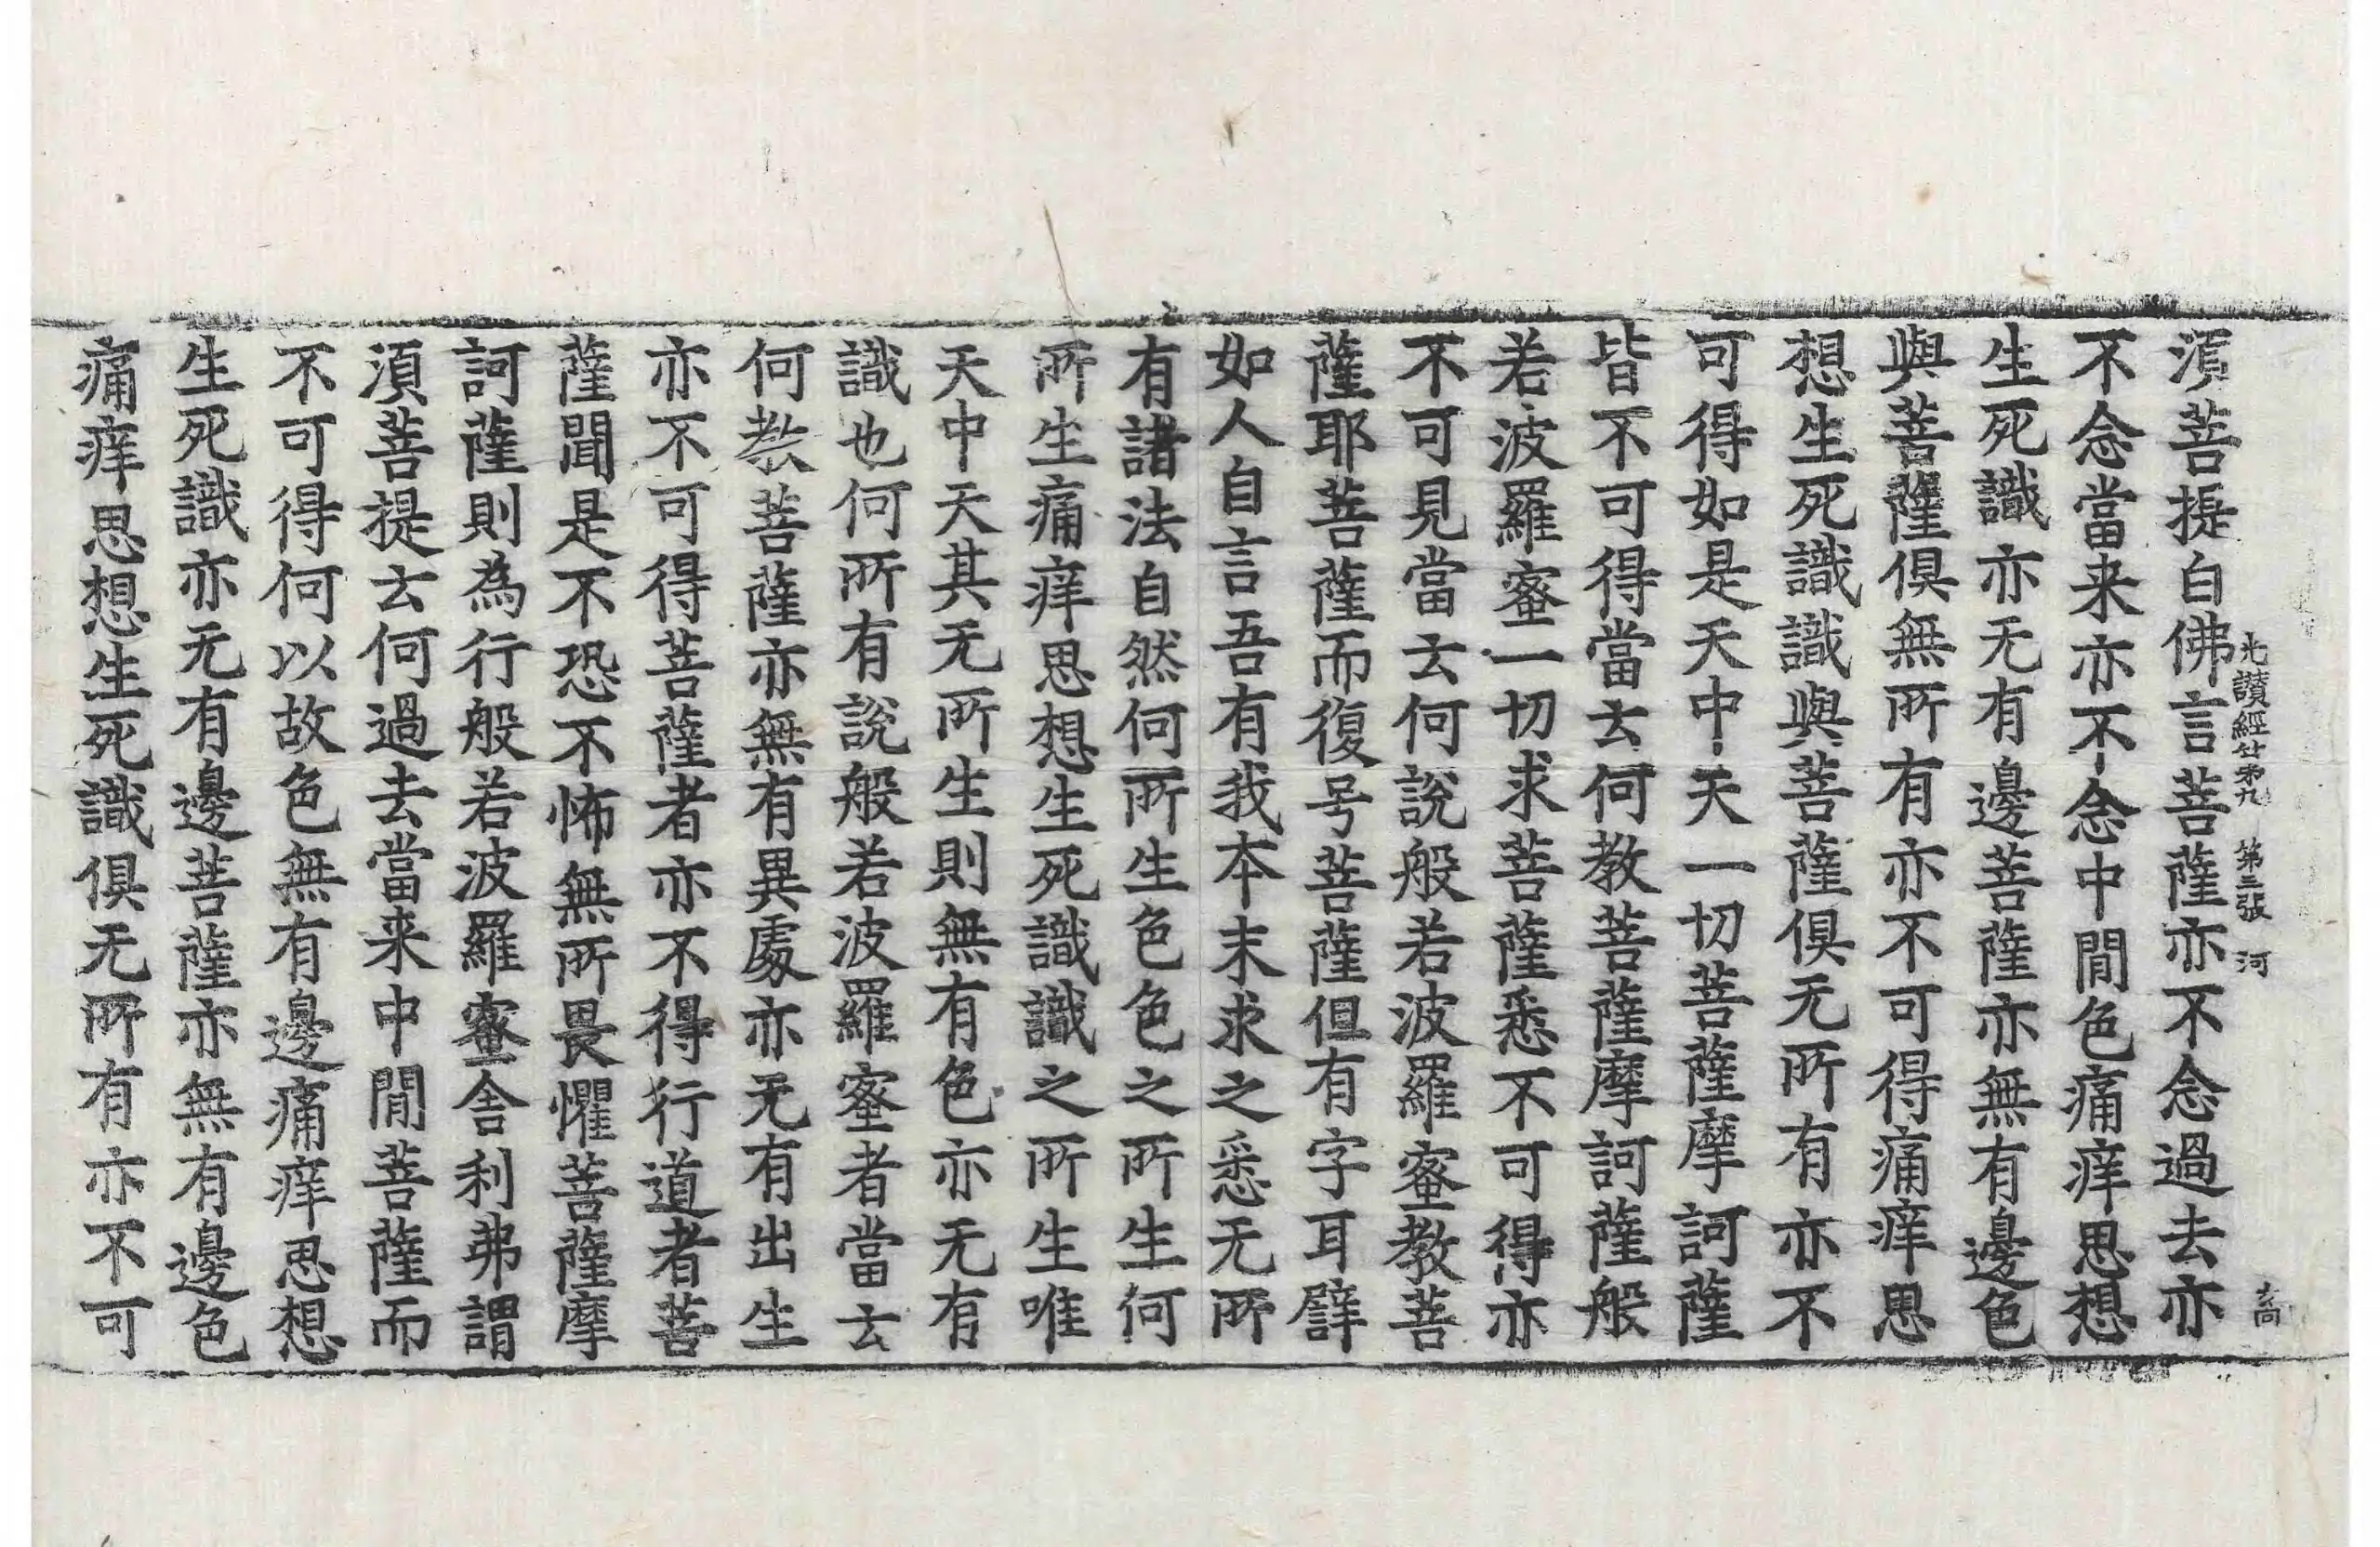 光讃經卷第九　第三張　河
須菩提白佛言菩薩亦不念過去亦
不念當来亦不念中間色痛痒思想
生死識亦无有邊菩薩亦無有邊色
與菩薩俱無所有亦不可得痛痒思
想生死識識與菩薩俱无所有亦不
可得如是天中天一切菩薩摩訶薩
皆不可得當云何教菩薩摩訶薩般
若波羅蜜一切求菩薩悉不可得亦
不可見當云何說般若波羅蜜教菩
薩耶菩薩而復号菩薩但有字耳譬
如人自言吾有我本末求之悉无所
有諸法自然何所生色色之所生何
所生痛痒思想生死識識之所生唯
天中天其无所生則無有色亦无有
識也何所有說般若波羅蜜者當云
何教菩薩亦無有異處亦无有出生
亦不可得菩薩者亦不得行道者菩
薩聞是不恐不怖無所畏懼菩薩摩
訶薩則為行般若波羅蜜舍利弗謂
須菩提云何過去當来中間菩薩而
不可得何以故色無有邊痛痒思想
生死識亦无有邊菩薩亦無有邊色
痛痒思想生死識俱无所有亦不可